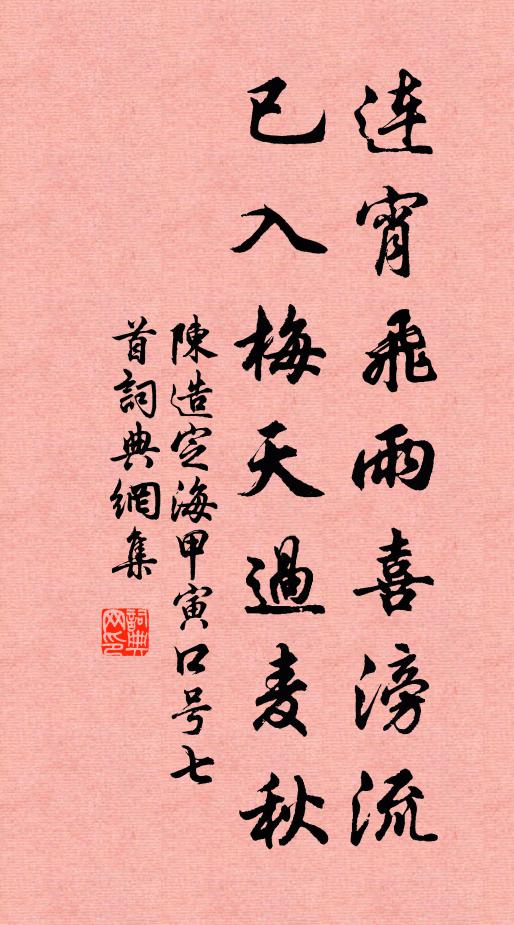 連宵飛雨喜滂流
已入梅天過麦秋
陳造定海甲寅口号七
首詞典網集
詞典網印